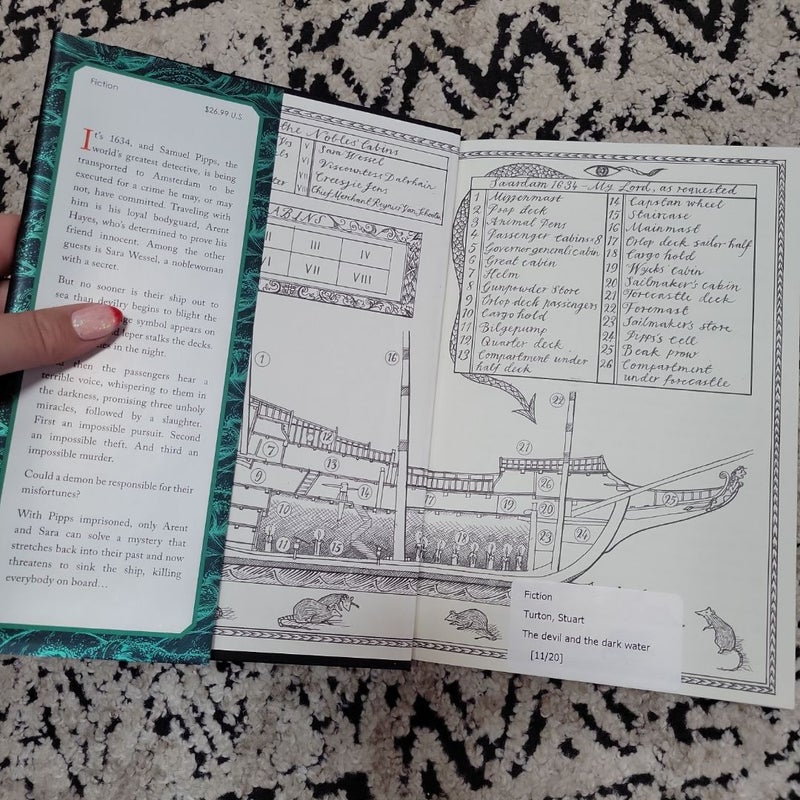 Fiction
$26.99 U.S
It's 1634, and Samuel Pipps, the
world's greatest detective, is being
transported to Amsterdam to be
executed for a crime he may, or may
not, have committed. Traveling with
him is his loyal bodyguard, Arent
Hayes, who's determined to prove his
friend innocent. Among the other
guests is Sara Wessel, a noblewoman
with a secret.
But no sooner is their ship out to
sea than devilry begins to blight the
symbol appears on
leper stalks the decks.
in the night.
then the passengers hear a
terrible voice, whispering to them in
the darkness, promising three unholy
miracles, followed by a slaughter.
First an impossible pursuit. Second
an impossible theft. And third an
impossible murder.
Could a demon be responsible for their
misfortunes?
With Pipps imprisoned, only Arent
and Sara can solve a mystery that
stretches back into their past and now
threatens to sink the ship, killing
everybody on board...
the Nobles' Cabins
V Sara Wessel
VI Viscountess Dalvhain
VII Creesjie Jens
VIII Chief Merchant Reynier Van Schooten
CABINS
III IV
VII VIII
Saardam 1634 - My Lord, as requested
1 Mizzenmast
2 Poop deck
3 Animal Pens
4 Passenger cabins × 8
5 Governor general cabin
6 Great cabin
7 Helm
8 Gunpowder Store
9 Orlop deck passengers
10 Cargo hold
11 Bilgepump
12 Quarter deck
13 Compartment under
half deck
14 Capstan wheel
15 Staircase
16 Mainmast
17 Orlop deck sailor half
18 Cargo hold
19 Wycks' cabin
20 Sailmaker's cabin
21 Forecastle deck
22 Foremast
23 Sailmaker's store
24 Pipps's cell
25 Beak prow
26 Compartment
under forecastle
1
16
22
12
7
13
9
14
10
11
15
17
18
19
20
21
26
23
24
25
Fiction
Turton, Stuart
The devil and the dark water
[11/20]